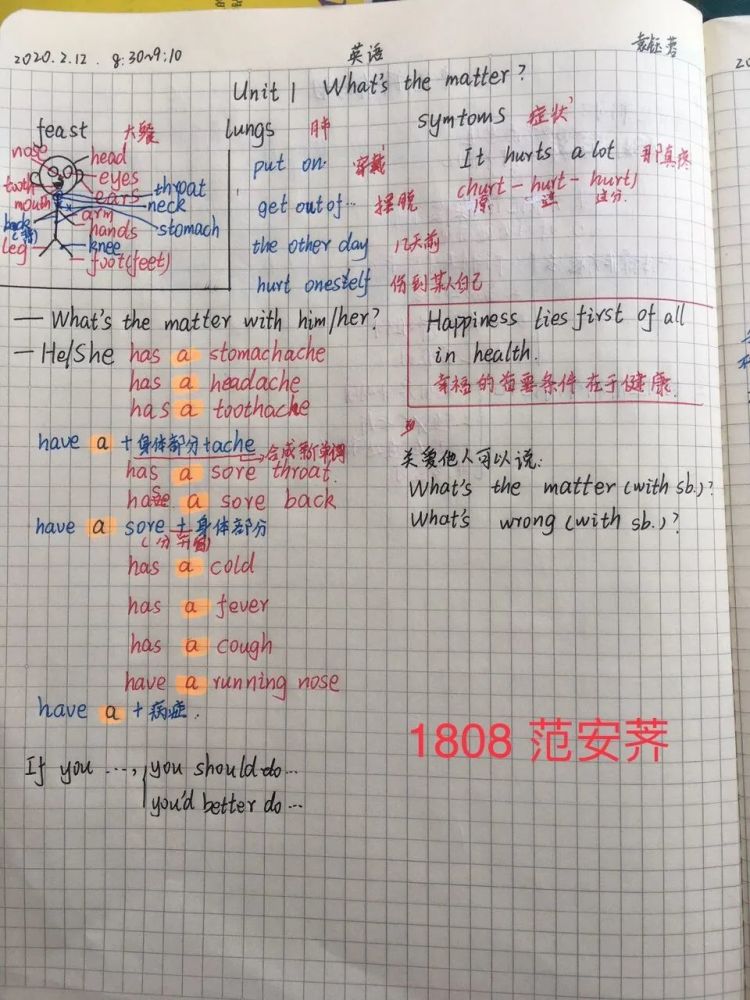 2020.2.12. 8:30~9:10 英语
Unit 1 What's the matter?
feast 大餐 lungs 肺 symtoms 症状
nose head
eyes
tooth ears throat
mouth neck
arm
hands stomach
leg knee
foot(feet)
put on 穿戴
get out of… 摆脱
the other day 几天前
hurt oneself 伤到某人自己
It hurts a lot 那真疼
(hurt-hurt-hurt)
原 过 过分
Happiness lies first of all
in health.
幸福的首要条件在于健康.
— What's the matter with him/her?
— He/She has a stomachache
has a headache
has a toothache
have a + 身体部分+ache
合成新单词
has a sore throat.
has a sore back
have a sore + 身体部分
(分开写)
has a cold
has a fever
has a cough
have a running nose
have a + 病症.
关爱他人可以说:
What's the matter (with sb.)?
What's wrong (with sb.)?
If you …, you should do…
you'd better do…
1808 范安荠